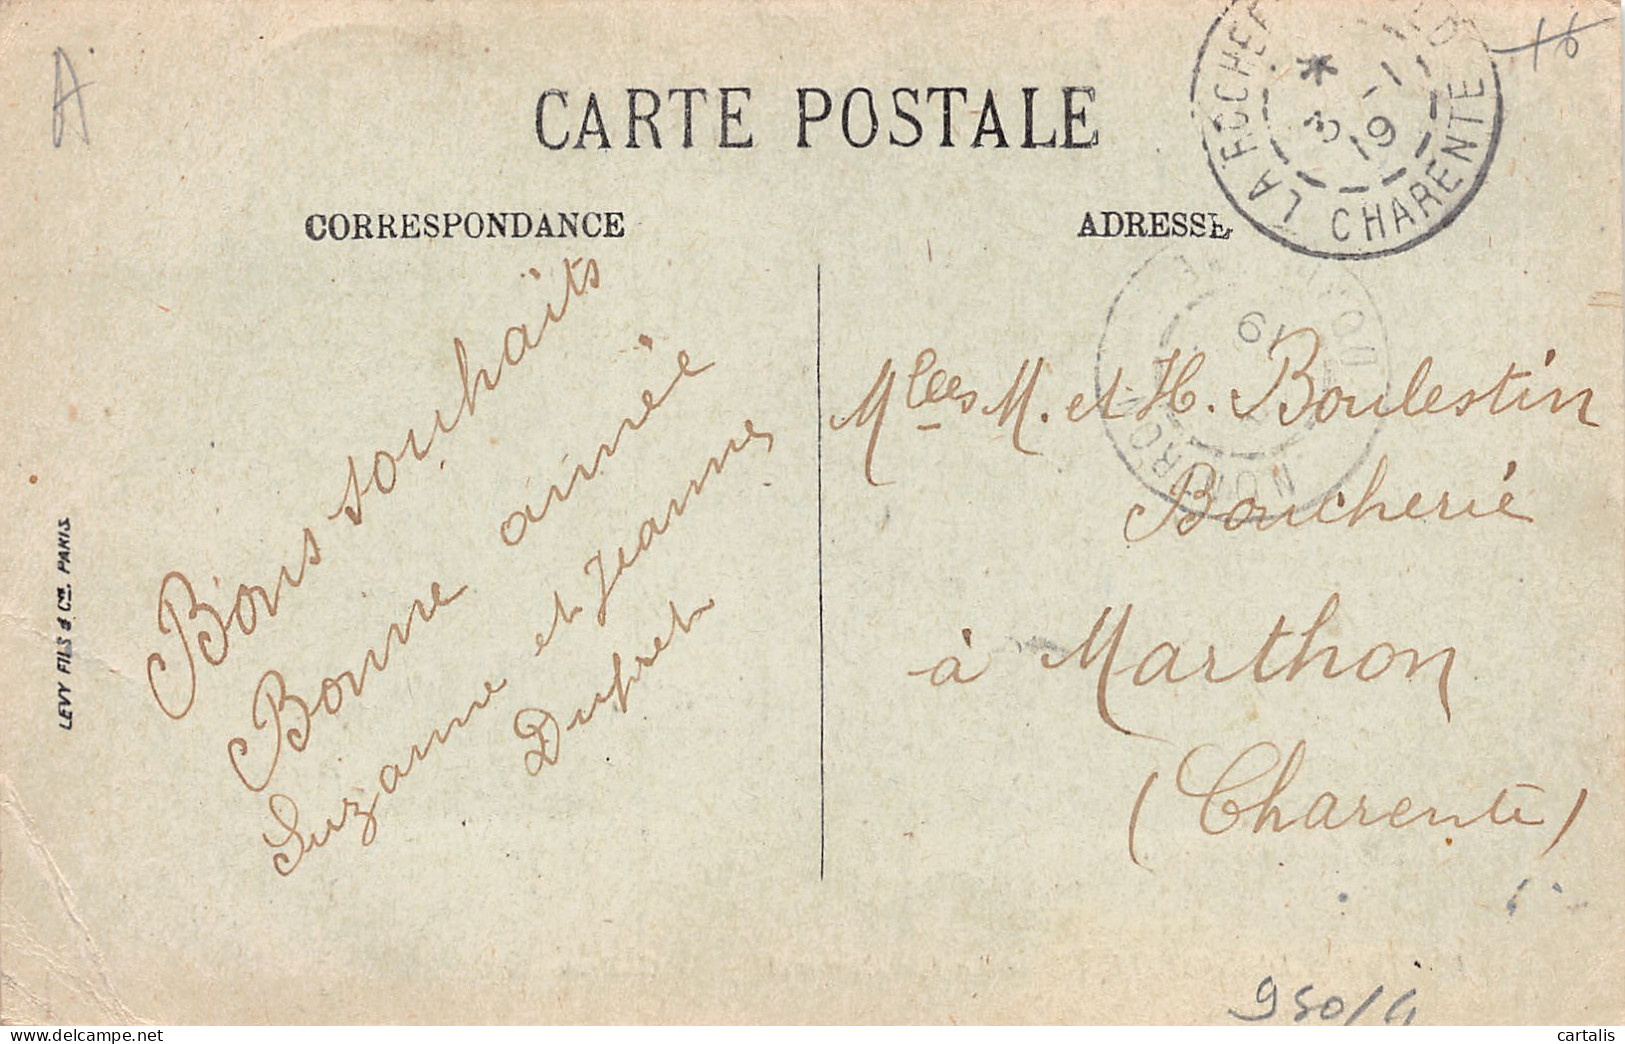 A
CARTE POSTALE
CORRESPONDANCE
ADRESSE
CHARENTE
3 - 1
19
Bons souhaits
Bonne année
Suzanne et Jeanne
Dupret
Mlles M. et H. Boulestin
Boucherie
à Marthon
(Charente)
LEVY FILS & Cie. PARIS
950/4
cartalis